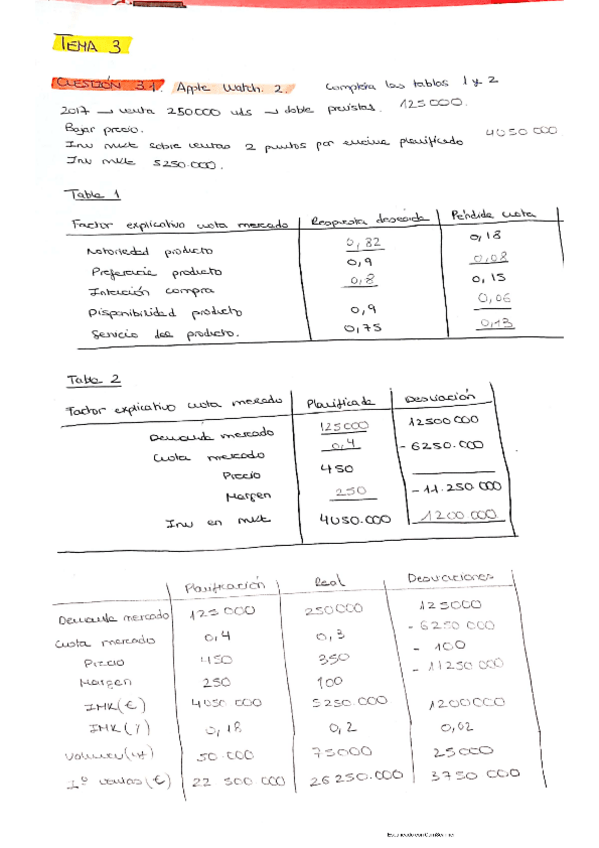 TEMA 3
CUESTIÓN 3.1. Apple Watch 2. Completa las tablas 1 y 2
2017 → venta 250000 uds → doble previstas. 125000.
Bajar precio.
Inv mkt sobre ventas 2 puntos por encima planificado 4050000
Inv mkt 5250.000.
Tabla 1
Factor explicativo cuota mercado Respuesta deseada Pérdida cuota
Notoriedad producto 0,82 0,18
Preferencia producto 0,9 0,08
Intención compra 0,8 0,15
Disponibilidad producto 0,9 0,06
Servicio del producto. 0,75 0,13
Tabla 2
Factor explicativo cuota mercado Planificada Desviación
Demanda mercado 125000 12500000
Cuota mercado 0,4 - 6250.000
Precio 450
Margen 250 - 11.250.000
Inv en mkt 4050.000 1200000
Planificación Real Desviaciones
Demanda mercado 125000 250000 125000
Cuota mercado 0,4 0,3 - 6250 000
Precio 450 350 - 100
Margen 250 100 - 11250 000
IMK(€) 4050 000 5250.000 1200000
IMK(%) 0,18 0,2 0,02
Volumen(ut) 50.000 75000 25000
Iº ventas(€) 22 500 000 26250.000 3750 000
Escaneado con CamScanner